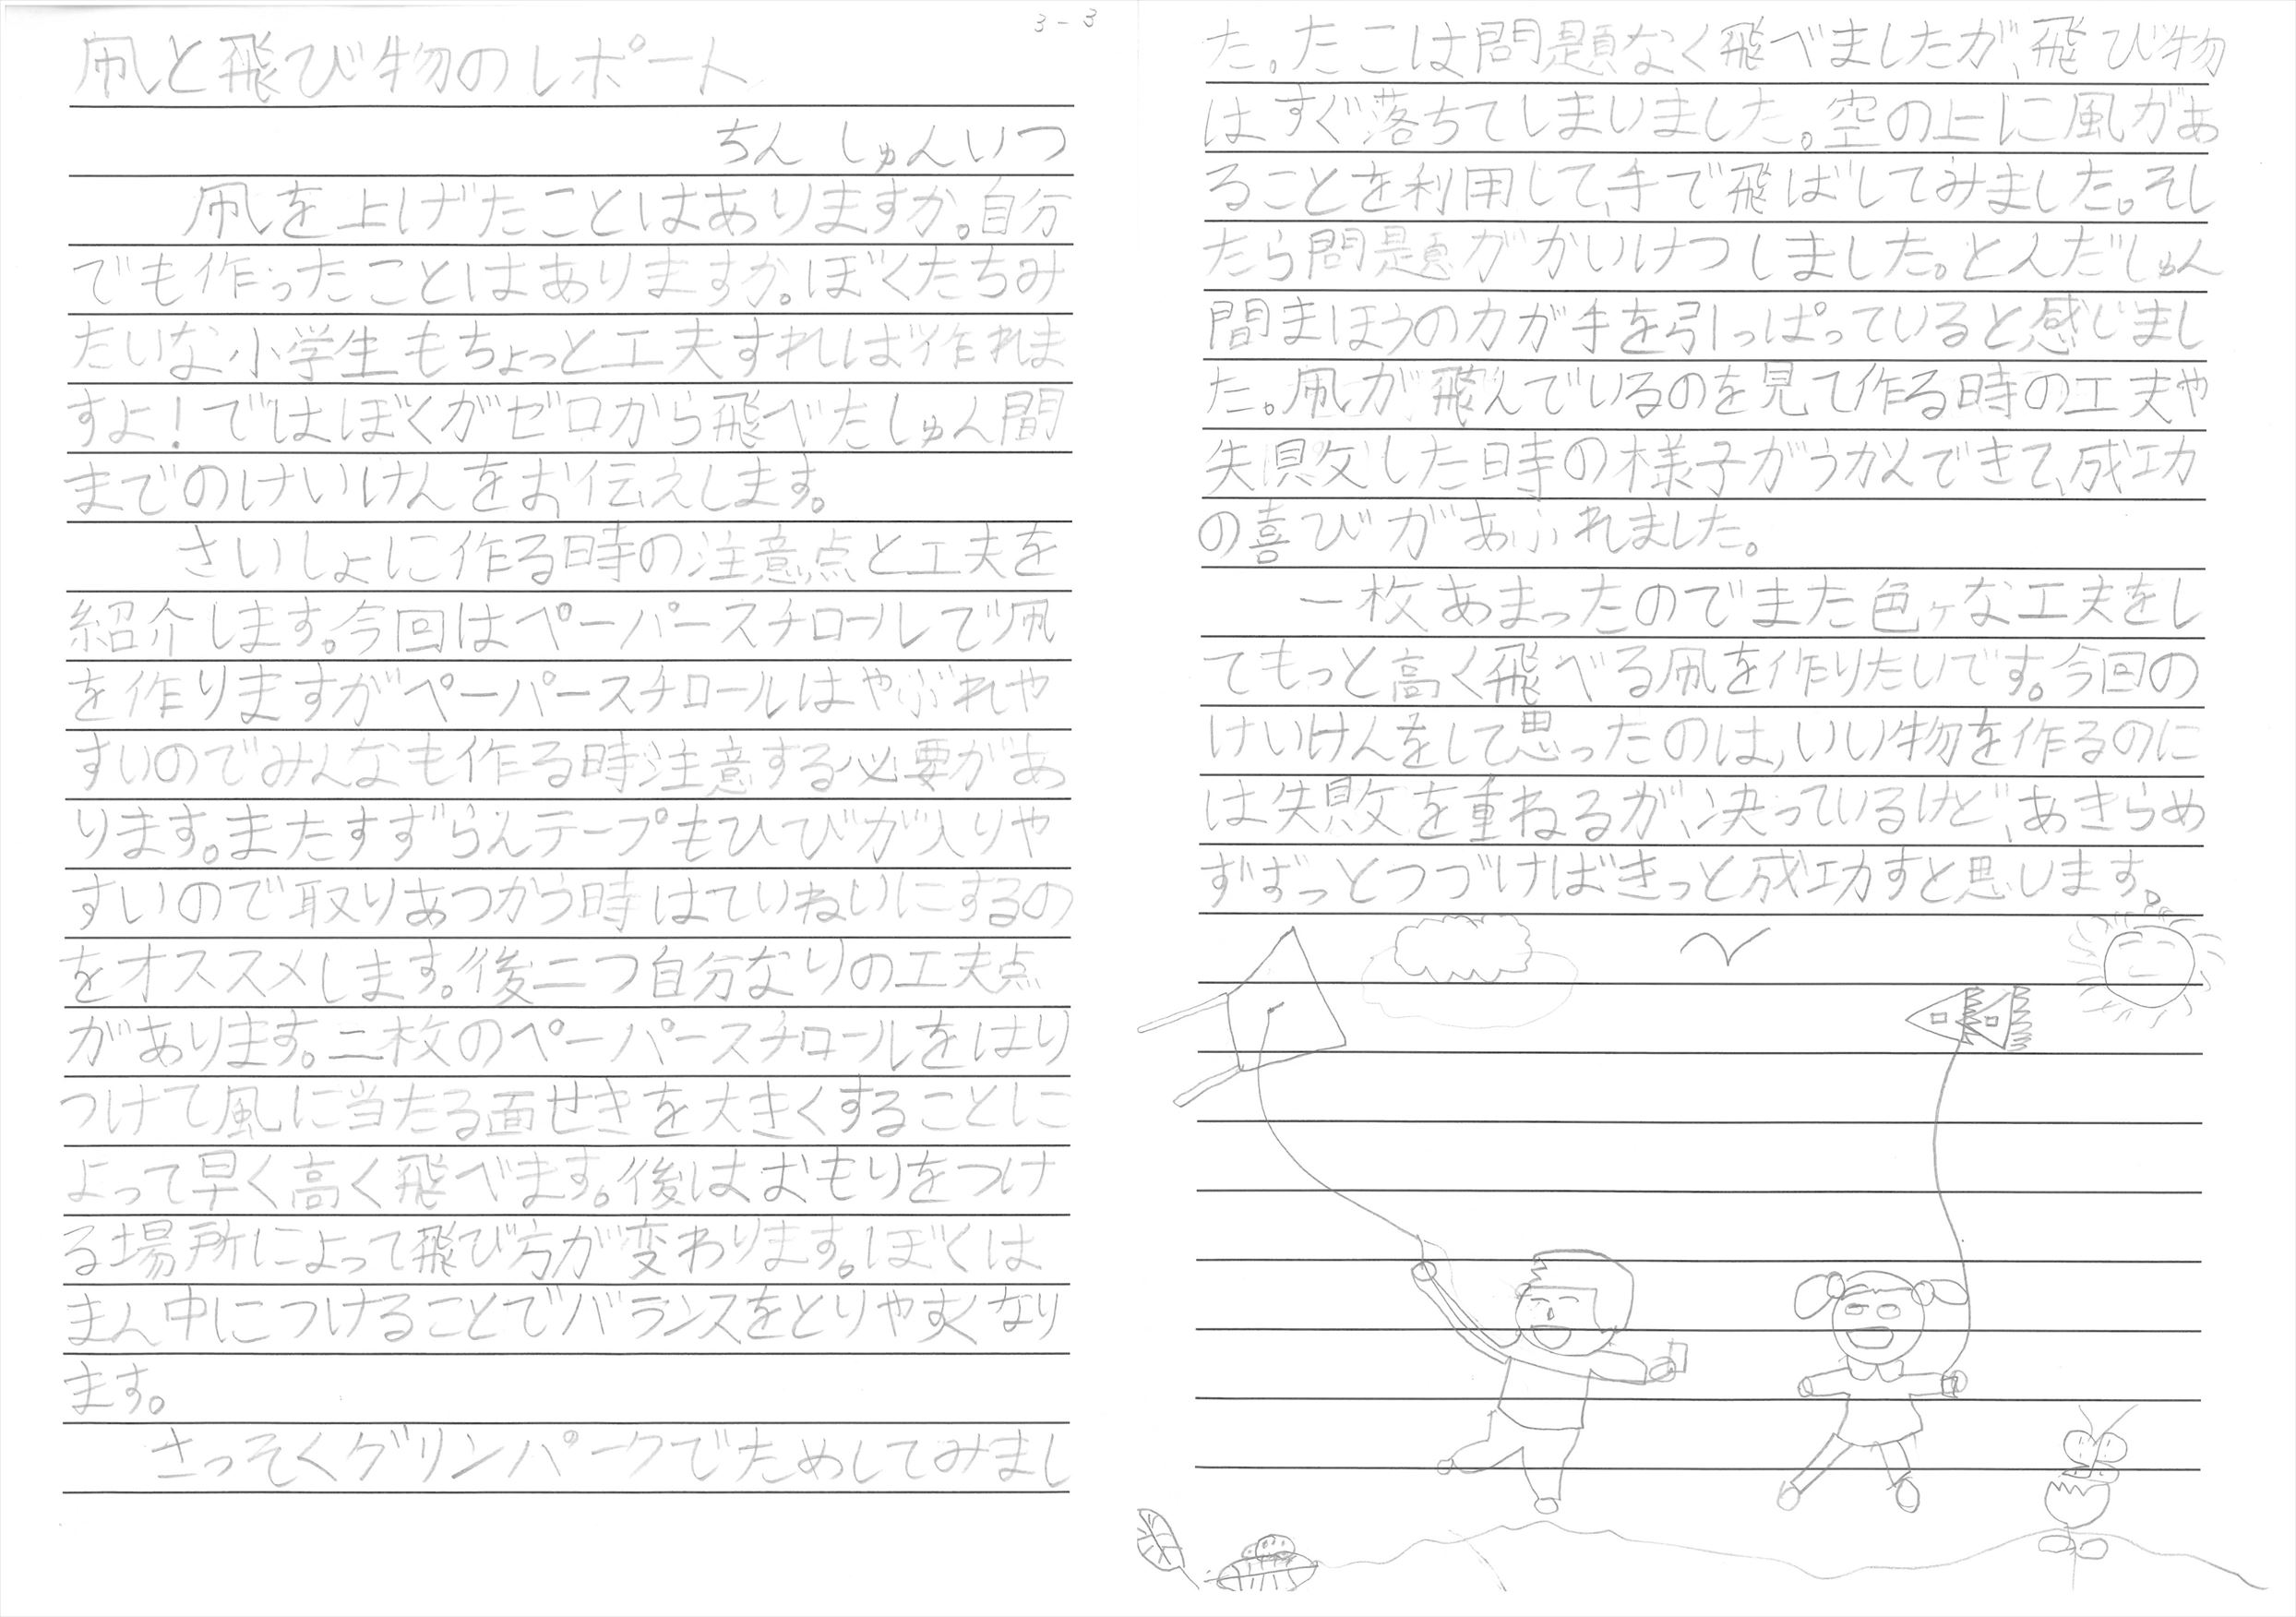 3-3
凧と飛び物のレポート
ちん しゅんいつ
凧を上げたことはありますか。自分
でも作ったことはありますか。ぼくたちみ
たいな小学生もちょっと工夫すれば作れま
すよ！ではぼくがゼロから飛べたしゅん間
までのけいけんをお伝えします。
さいしょに作る時の注意点と工夫を
紹介します。今回はペーパースチロールで凧
を作りますがペーパースチロールはやぶれや
すいのでみんなも作る時注意する必要があ
ります。またすずらんテープもひびが入りや
すいので取りあつかう時はていねいにするの
をオススメします。後二つ自分なりの工夫点
があります。二枚のペーパースチロールをはり
つけて風に当たる面せきを大きくすることに
よって早く高く飛べます。後はおもりをつけ
る場所によって飛び方が変わります。ぼくは
まん中につけることでバランスをとりやすくなり
ます。
さっそくグリンパークでためしてみまし
た。たこは問題なく飛べましたが、飛び物
はすぐ落ちてしまいました。空の上に風があ
ることを利用して、手で飛ばしてみました。そし
たら問題がかいけつしました。とんだしゅん
間まほうの力が手を引っぱっていると感じまし
た。凧が飛んでいるのを見て作る時の工夫や
失敗した時の様子がうかんできて、成功
の喜びがあふれました。
一枚あまったのでまた色々な工夫をし
てもっと高く飛べる凧を作りたいです。今回の
けいけんをして思ったのは、いい物を作るのに
は失敗を重ねるが、決っているけど、あきらめ
ずずっとつづけばきっと成功すと思します。